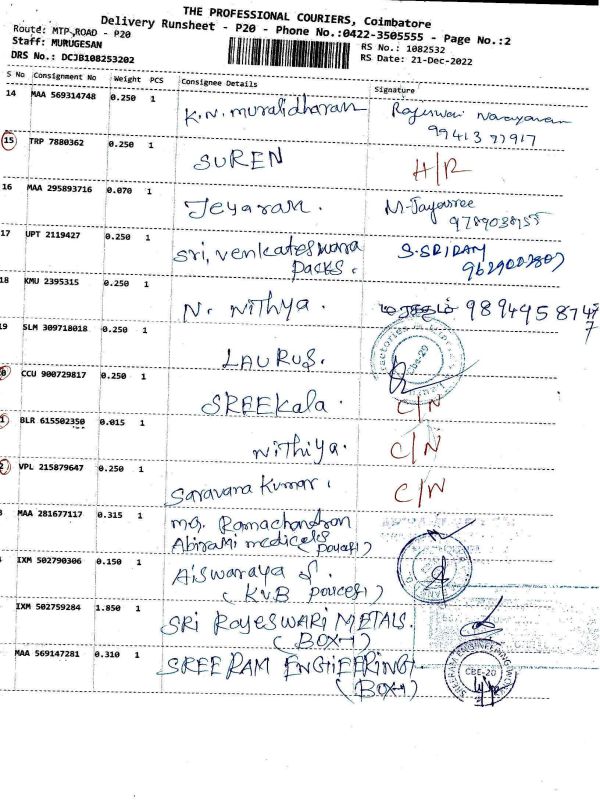 THE PROFESSIONAL COURIERS, Coimbatore
Delivery Runsheet - P20 - Phone No.:0422-3505555 - Page No.:2
Route: MTP ROAD - P20
Staff: MURUGESAN
RS No.: 1082532
DRS No.: DCJB108253202
RS Date: 21-Dec-2022
S No Consignment No Weight PCS Consignee Details Signature
14 MAA 569314748 0.250 1 K.N. muralidharan Rajeswari Narayanan
99413 97917
15 TRP 7880362 0.250 1 SUREN H/R
16 MAA 295893716 0.070 1 Jeyaram. M. Jayasree
17 UPT 2119427 0.250 1 Sri, Venkateswara S. SRIRAM
Packs.
18 KMU 2395315 0.250 1 N. Nithya. 98944 58747
7
9 SLM 309718018 0.250 1 LAURUS.
0 CCU 900729817 0.250 1 SREEKala. C/N
1 BLR 615502350 0.015 1 Nithiya. C/N
2 VPL 215879647 0.250 1 Saravana Kumar. C/N
MAA 281677117 0.315 1 Ramachandran
Abirami medicals
IXM 502790306 0.150 1 Aiswaraya
(KVB
IXM 502759284 1.850 1 SRI RAJESWARI METALS.
(BOX-1)
MAA 569147281 0.310 1 SREE RAM ENGTIEERING
(BOX-1)
CBE-20